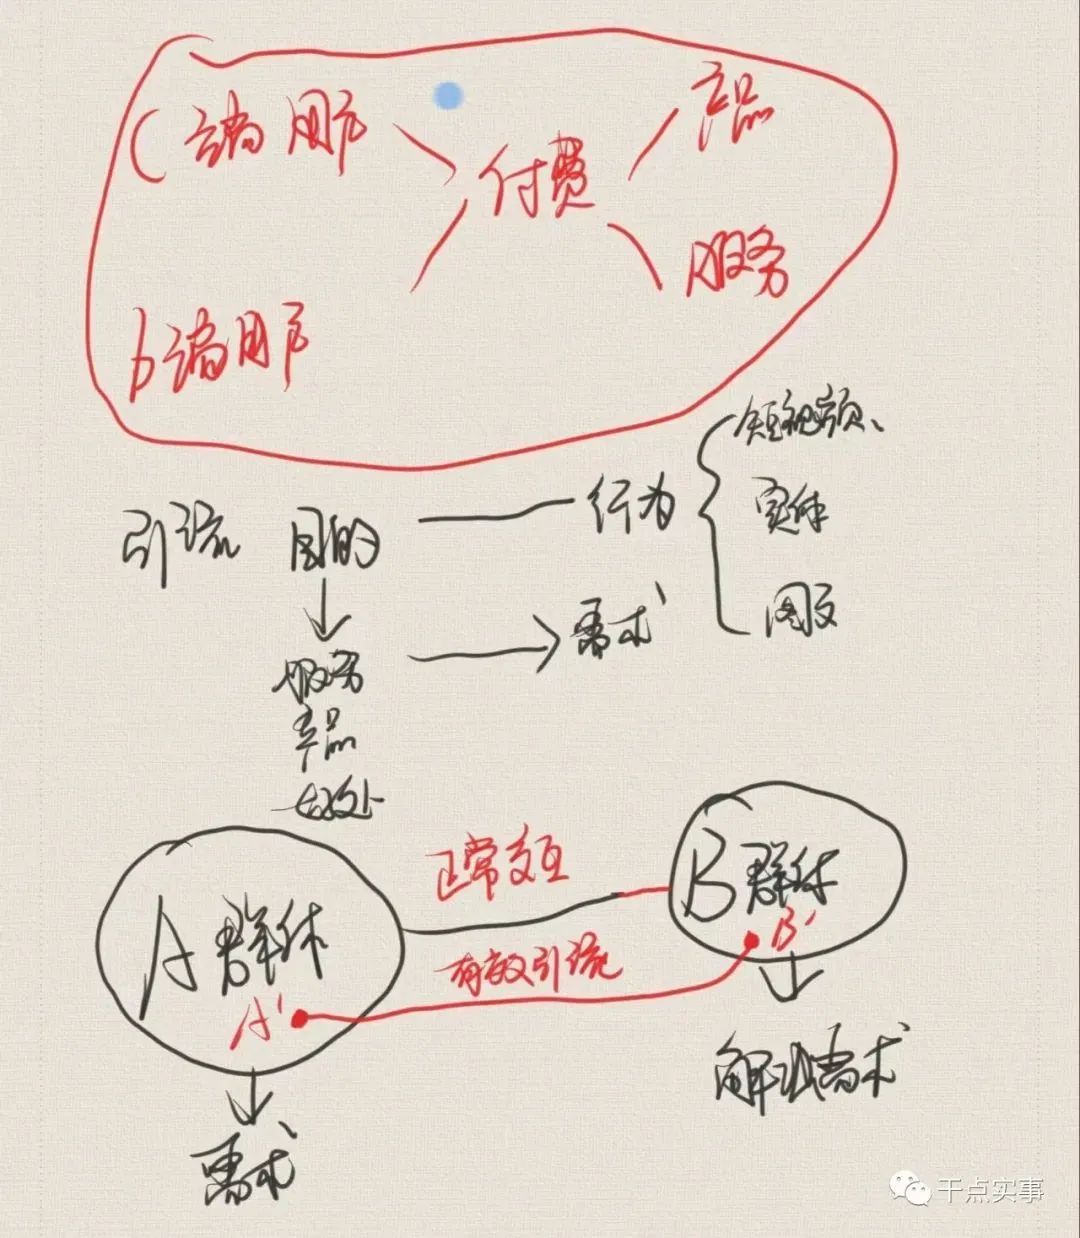 C端用户
付费
产品
服务
b端用户
引流 目的
行为
短视频、
实体
图文
需求
服务
产品
好处
A群体
A'
正常交互
有效引流
B群体
B'
需求
解决需求
干点实事